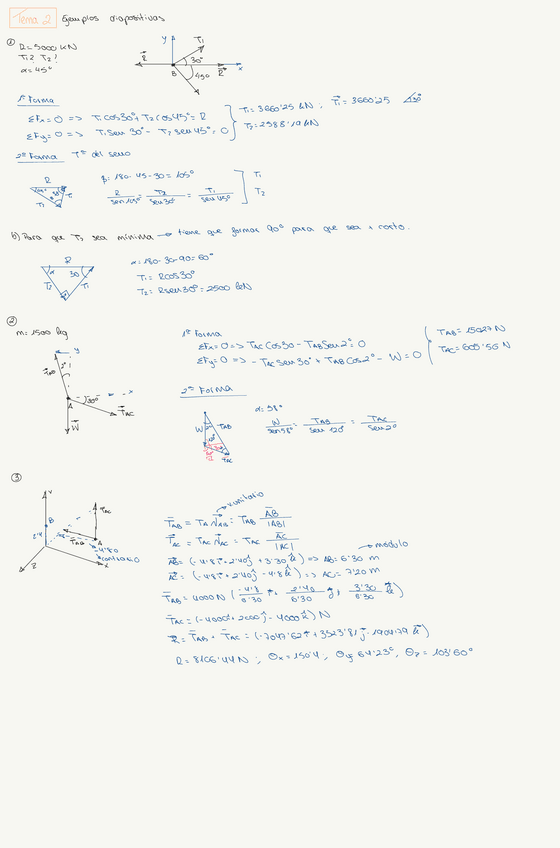 Tema 2 Ejemplos diapositivas
①
R = 5000 kN
T₁? T₂?
α = 45°
y T₁
R 30° x
B 45° R
1ª Forma
ΣFx = 0 => T₁ cos 30° + T₂ cos 45° = R
ΣFy = 0 => T₁ sen 30° - T₂ sen 45° = 0
T₁ = 3660'25 kN ; T₁ = 3660'25 30°
T₂ = 2588'19 kN
2ª Forma Tª del seno
R
T₂ T₁
β = 180 - 45 - 30 = 105°
R / sen 105° = T₂ / sen 30° = T₁ / sen 45°
T₁
T₂
b) Para que T₂ sea mínima → tiene que formar 90° para que sea + corto.
R
α 30
T₂ T₁
α = 180 - 30 - 90 = 60°
T₁ = R cos 30°
T₂ = R sen 30° = 2500 kN
②
m = 1500 kg
y
T_AB 2°
A 30° x
T_AC
W
1ª Forma
ΣFx = 0 => T_AC cos 30 - T_AB sen 2° = 0
ΣFy = 0 => - T_AC sen 30° + T_AB cos 2° - W = 0
T_AB = 15027 N
T_AC = 605'56 N
2ª Forma
W T_AB
T_AC
α = 58°
W / sen 58° = T_AB / sen 120° = T_AC / sen 2°
③
Y
B
T_AC
T_AB A
4'80
contrario
x
z
unitario
T_AB = T_A λ_AB = T_AB AB / |AB|
T_AC = T_AC λ_AC = T_AC AC / |AC|
módulo
AB = (-4'8 i + 2'40 j + 3'30 k) => AB = 6'30 m
AC = (-4'8 i + 2'40 j - 4'8 k) => AC = 7'20 m
T_AB = 4000 N ( -4'8 / 6'30 i, 2'40 / 6'30 j, 3'30 / 6'30 k )
T_AC = (-4000 i + 2000 j - 4000 k) N
R = T_AB + T_AC = (-7047'62 i + 3523'81 j - 1904'79 k)
R = 8106'44 N ; θx = 150'4 ; θy = 64'23°, θz = 103'60°